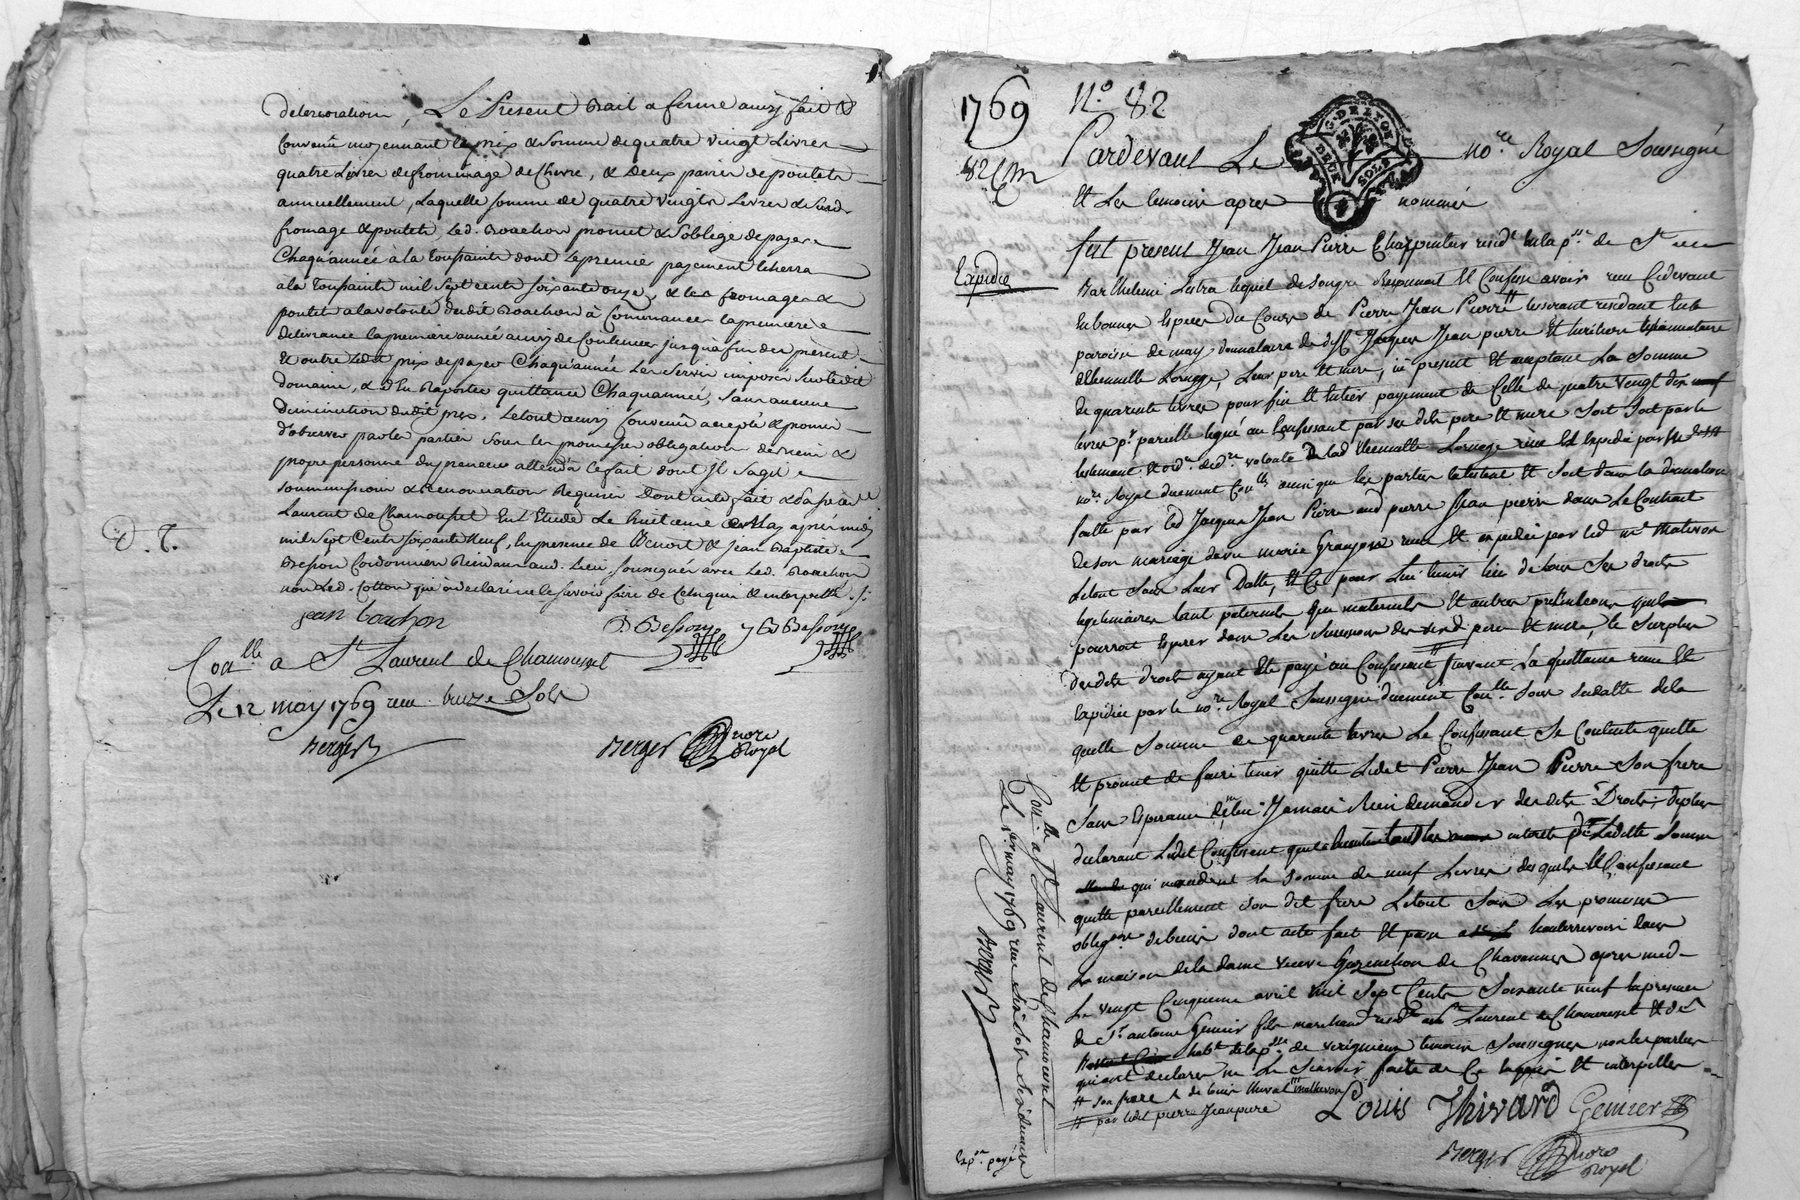 deterioration, Le Present Bail a ferme ainsy fait &
Convenu moyennant le prix & Somme de quatre vingt Livres
quatre Livres de frommage de Chevre, & Deux paires de poulets
annuellement, Laquelle somme de quatre vingts Livres &
fromage & poulets Led. Roachon promet & s'oblige de payer
Chaqu'année à la toussaints dont le premier payement
à la toussaints mil sept cents soixante onze, & les fromages &
poulets a la volonté dudit Roachon à Commancer la premiere
delivrance la premiere année ainsy de Continuer jusqu'a fin du present
Et outre ledit prix de payer Chaqu'année Les Servis imposés sur ledit
domaine, & d'En Raporter quittance Chaquannée, sans aucune
Diminution dudit prix. Le tout ainsy Convenû accepté & promis
d'observer par les parties sous les promesses obligation de Biens &
propre personne du preneur attendû le fait dont Il s'agit
soummission & Renonciation Requises Dont acte fait & passé à St
Laurent de Chamousset En L'Etude Le huitieme May après midi
mil Sept Cents soixante Neuf, En presence de Benoit & Jean Baptiste
Besson Cordonniers Residants aud. Lieu, soussignés avec Led. Roachon
non Led. Cotton qui a declaré ne le sçavoir faire de Ce Enquis & interpellé
D. T.
jean roachon B Besson J B Besson
Con.lle a St Laurent de Chamousset
Le 12 may 1769 reçu treize Sols
Berger
Berger nore Royal
1769 N.o 82
82
G. DE LYON
DEUX SOLS
Pardevant Le no.re Royal Soussigné
Et Les temoins apres nommés
Expedié
fut present Jean Jean Pierre Charpentier resid.t en la p.sse de St
Barthelemi Lestra lequel de son gré Reconnoit Et Confesse avoir reçu Cidevant
En bonnes Especes Du Cours de Pierre Jean Pierre tisserant residant
paroisse de may donnataire de Jacques Jean pierre Et heritier testamentaire
Leurs pere Et mere, ici present Et acceptant La Somme
de quarente livres pour fin Et Entier payement de Celle de quatre Vingt dix
livres p.r pareille legué au Confessant par ses dits pere Et mere Soit Soit par le
testament volonté De lad
no.re Royal duement Con.llé ainsi que les parties Et Soit dans la donnation
faitte par led Jacques Jean Pierre aud pierre Jean pierre dans Le Contract
de son mariage avec marie reçu Et expedié par led m.e Matheron
Le tout Sous Leurs Datte, Et Ce pour Lui tenir lieu de tous Ses droits
legitimaires tant paternels que maternels Et autres
pourroit Esperer dans Les Successions de pere Et mere, le Surplus
desdits droits ayant Eté payé au Confessant Suivant La quittance reçue Et
Expediée par le no.re Royal Soussigné duement Con.llé Sous Sa datte de la
quelle Somme de quarente livres Le Confessant Se Contente quitte
Et promet de faire tenir quitte Ledit Pierre Jean Pierre Son frere
Sans Esperance de lui Jamais Rien demander desdits Droits, deplus
declarant Ledit Confessant interets de Laditte Somme
qui montent la somme de neuf Livres desquels le Confessant
quitte pareillement son dit frere Le tout Sous Les promesses
oblig.on de biens dont acte fait Et passé dans
La maison de la dame veuve de Chavannes apres midi
Le vingt Cinquieme avril mil Sept Cents Soixante neuf En presence
de S.r antoine Gemier fils marchand resid.t a St Laurent de Chamousset Et de
hab.t de la p.sse de temoins Soussignés non les parties
qui ont declarés ne Le Scavoir faire de Ce Enquis Et interpellés
# son frere de Louis thivard
# par ledit pierre Jean pierre
Louis Thivard Gemier
Berger nore Royal
Con.llé a St Laurent de Chamousset
Le 1er may 1769 reçu Six Sols
Berger
Exp.on payé